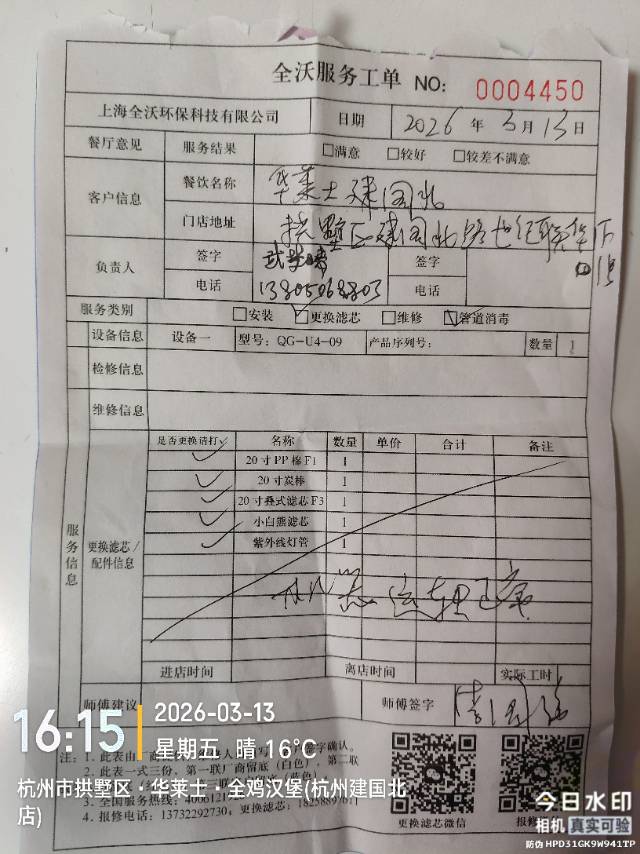 全沃服务工单 NO: 0004450
上海全沃环保科技有限公司 日期 2026 年 3 月 13 日
餐厅意见 服务结果 □满意 □较好 □较差不满意
客户信息 餐饮名称 华莱士建国北
门店地址 拱墅区建国北路世纪联华
负责人 签字 签字
电话 13805068803 电话
服务类别 □安装 □更换滤芯 □维修 □管道消毒
设备信息 设备一 型号: QG-U4-09 产品序列号: 数量 1
检修信息
维修信息
服务信息 更换滤芯/配件信息
是否更换请打✓ 名称 数量 单价 合计 备注
✓ 20寸PP棉F1 1
✓ 20寸炭棒 1
✓ 20寸叠式滤芯F3 1
✓ 小白熊滤芯 1
✓ 紫外线灯管 1
进店时间 离店时间 实际工时
师傅建议 师傅签字
注: 1. 此表由厂商
2. 此表一式三份, 第一联厂商留底 (白色), 第二联
3. 全国服务热线: 4006121
4. 报修电话: 13732292730; 更换滤芯: 18258891
更换滤芯微信
16:15 2026-03-13
星期五 晴 16°C
杭州市拱墅区·华莱士·全鸡汉堡(杭州建国北
店)
今日水印
相机 真实可验
防伪 HPD31GK9W941TP